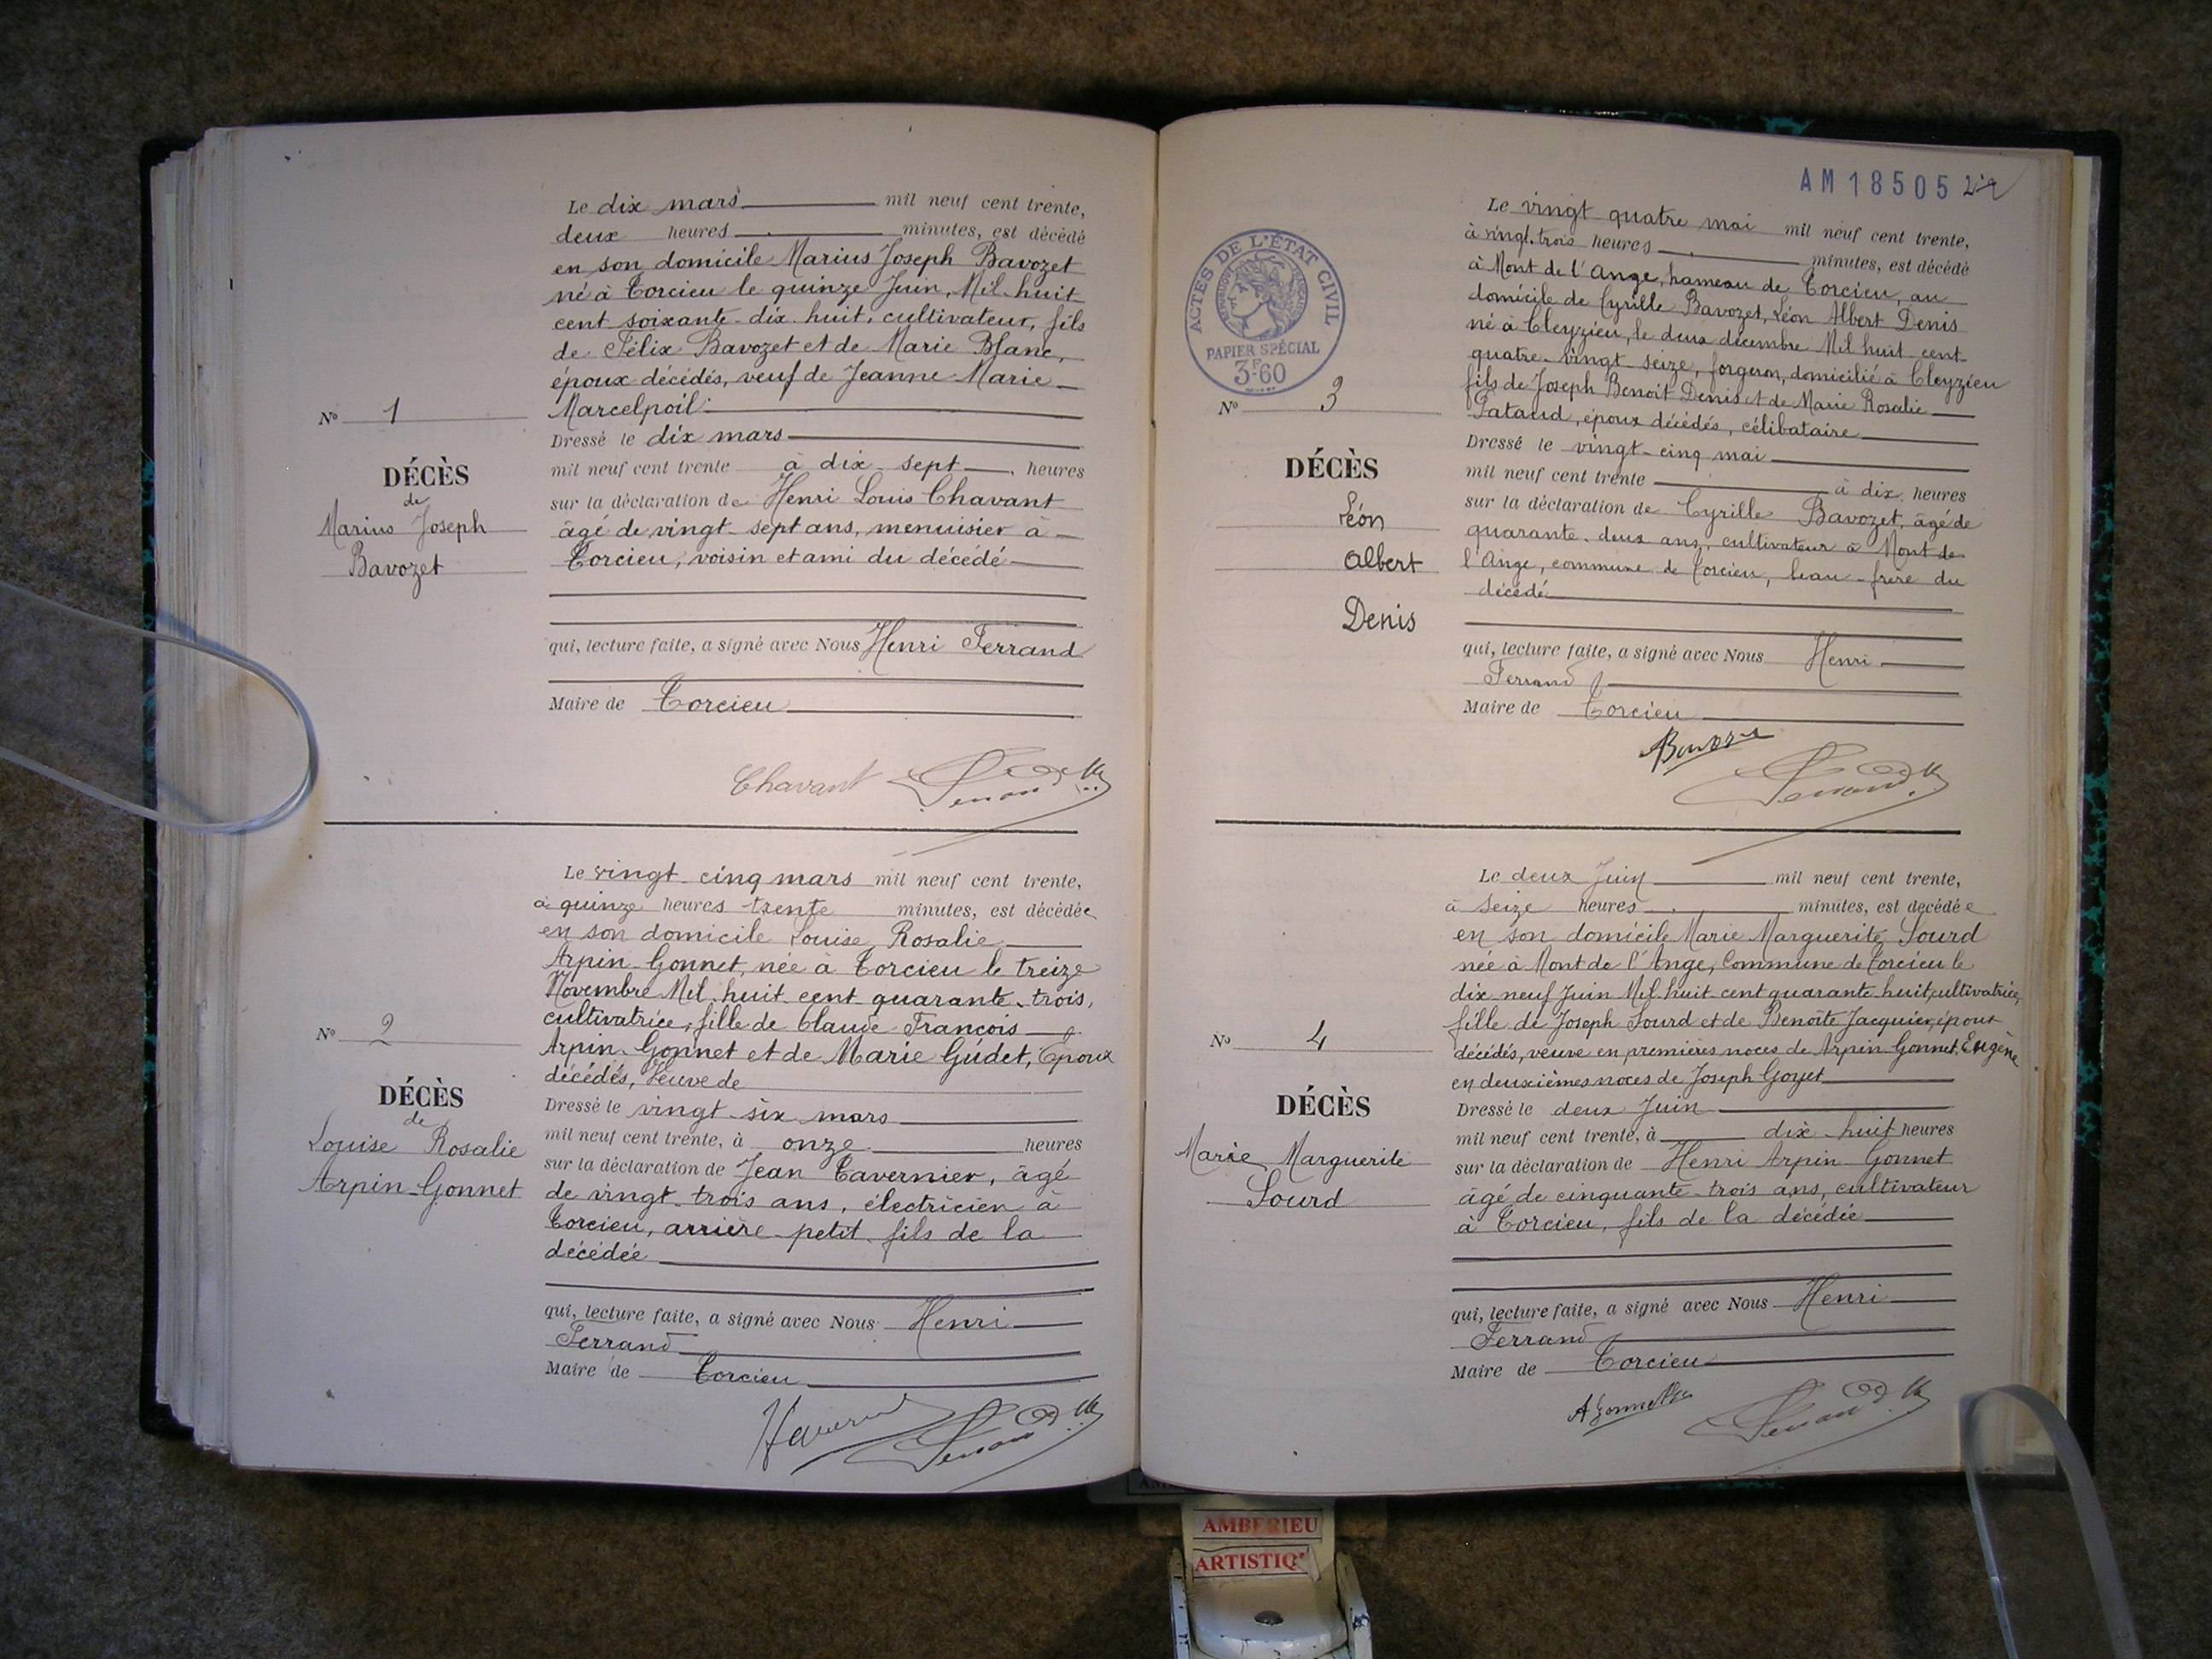 Le dix mars mil neuf cent trente,
deux heures minutes, est décédé
en son domicile Marius Joseph Bavozet
né à Torcieu le quinze Juin, Mil huit
cent soixante-dix-huit, cultivateur, fils
de Félix Bavozet et de Marie Blanc,
époux décédés, veuf de Jeanne-Marie
Marcelpoil
Dressé le dix mars
mil neuf cent trente à dix-sept heures
sur la déclaration de Henri Louis Chavant
âgé de vingt-sept ans, menuisier à
Torcieu, voisin et ami du décédé
qui, lecture faite, a signé avec Nous Henri Ferrand
Maire de Torcieu
Chavant Ferrand
N° 1
DÉCÈS
de
Marius Joseph
Bavozet
Le vingt-cinq mars mil neuf cent trente,
à quinze heures trente minutes, est décédée
en son domicile Louise Rosalie
Arpin-Gonnet, née à Torcieu le treize
Novembre Mil huit cent quarante-trois,
cultivatrice, fille de Claude-François
Arpin-Gonnet et de Marie Gudet, Epoux
décédés, Veuve de
Dressé le vingt-six mars
mil neuf cent trente, à onze heures
sur la déclaration de Jean Tavernier, âgé
de vingt-trois ans, électricien à
Torcieu, arrière-petit-fils de la
décédée
qui, lecture faite, a signé avec Nous Henri
Ferrand
Maire de Torcieu
Ferrand
N° 2
DÉCÈS
de
Louise Rosalie
Arpin-Gonnet
AM 18505
ACTES DE L'ÉTAT CIVIL
PAPIER SPÉCIAL
3F60
Le vingt quatre mai mil neuf cent trente,
à vingt-trois heures minutes, est décédé
à Mont de l'Ange, hameau de Torcieu, au
domicile de Cyrille Bavozet, Léon Albert Denis
né à Cleyzieu, le deux décembre Mil huit cent
quatre-vingt-seize, forgeron, domicilié à Cleyzieu
fils de Joseph Benoit Denis et de Marie Rosalie
Pataud, époux décédés, célibataire
Dressé le vingt-cinq mai
mil neuf cent trente à dix heures
sur la déclaration de Cyrille Bavozet, âgé de
quarante-deux ans, cultivateur à Mont de
l'Ange, commune de Torcieu, beau-frère du
décédé
qui, lecture faite, a signé avec Nous Henri
Ferrand
Maire de Torcieu
Ferrand
N° 3
DÉCÈS
Léon
Albert
Denis
Le deux Juin mil neuf cent trente,
à seize heures minutes, est décédée
en son domicile Marie Marguerite Sourd
née à Mont de l'Ange, Commune de Torcieu le
dix neuf Juin Mil huit cent quarante-huit, cultivatrice,
fille de Joseph Sourd et de Benoîte Jacquier, époux
décédés, veuve en premières noces de Arpin-Gonnet Eugène
en deuxièmes noces de Joseph Goyet
Dressé le deux Juin
mil neuf cent trente, à dix-huit heures
sur la déclaration de Henri Arpin-Gonnet
âgé de cinquante-trois ans, cultivateur
à Torcieu, fils de la décédée
qui, lecture faite, a signé avec Nous Henri
Ferrand
Maire de Torcieu
Ferrand
N° 4
DÉCÈS
Marie Marguerite
Sourd
AMBERIEU
ARTISTIQ